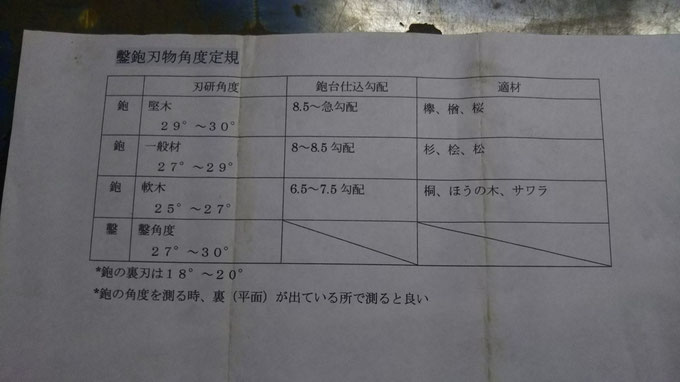 鑿鉋刃物角度定規
刃研角度 鉋台仕込勾配 適材
鉋 堅木 8.5～急勾配 欅、楢、桜
２９°～３０°
鉋 一般材 8～8.5 勾配 杉、桧、松
２７°～２９°
鉋 軟木 6.5～7.5 勾配 桐、ほうの木、サワラ
２５°～２７°
鑿 鑿角度
２７°～３０°
*鉋の裏刃は１８°～２０°
*鉋の角度を測る時、裏（平面）が出ている所で測ると良い